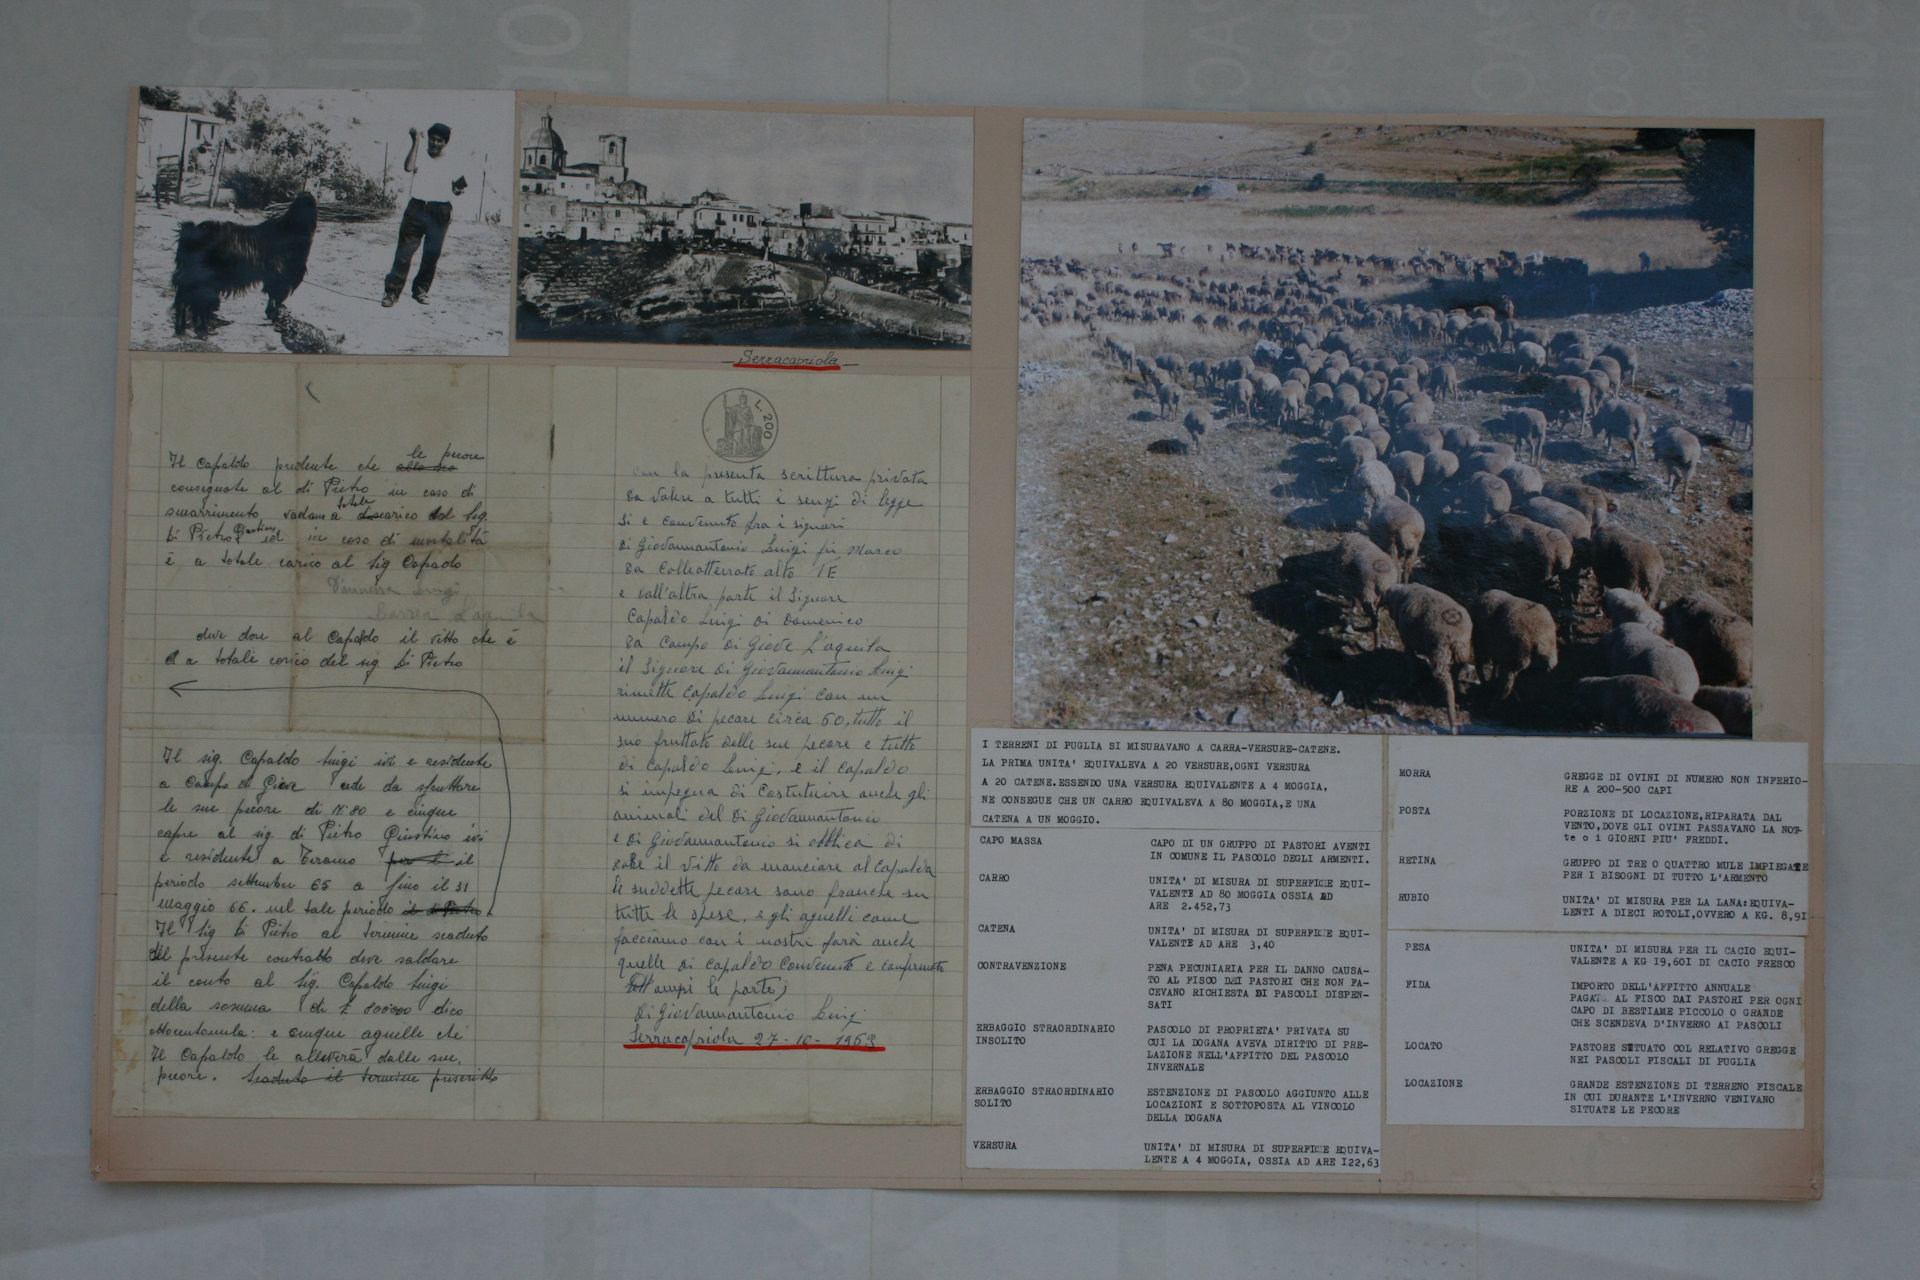 Serracapriola
Il Capaldo pretende che le pecore
consegnate al di Pietro in caso di
smarrimento vadano a totale carico del Sig.
Di Pietro Giustino ed in caso di mortalità
è a totale carico al Sig Capaldo
Luigi
Barrea L'aquila
deve dare al Capaldo il vitto che è
a totale carico del sig. Di Pietro
Il sig. Capaldo Luigi ivi e residente
a Campo di Giove cede da sfruttare
le sue pecore di N: 80 e cinque
capre al sig. di Pietro Giustino ivi
e residente a Teramo per il il
periodo settembre 65 a fino il 31
Maggio 66. nel tale periodo il di Pietro
Il Sig Di Pietro al termine scaduto
del presente contratto deve saldare
il conto al Sig. Capaldo Luigi
della somma di £ 800000 dico
ottocentomila: e cinque agnelle che
Il Capaldo le alleverà dalle sue
pecore. Scaduto il termine prescritto
L. 200
con la presenta scrittura privata
da valere a tutti i senzi di legge
si e convenuto fra i signori
di Giovannantonio Luigi fu Marco
da Collatterrato alto TE
e dall'altra parte il Signore
Capaldo Luigi di Domenico
da Campo di Giove L'aquila
il Signore di Giovannantonio Luigi
rimette Capaldo Luigi con un
numero di pecore circa 60, tutto il
suo fruttato delle sue pecore e tutto
di Capaldo Luigi, e il Capaldo
si impegna di Costuturire anche gli
animali del di Giovannantonio
e di Giovannantonio si obblica di
dare il vitto da manciare al Capaldo
le suddette pecore sono franche su
tutte le spese, e gli agnelli come
facciamo con i nostri farà anche
quelle di Capaldo Convenuto e confermato
ambi le parte,
Di Giovannantonio Luigi
Serracapriola 27-10-1963
I TERRENI DI PUGLIA SI MISURAVANO A CARRA-VERSURE-CATENE.
LA PRIMA UNITA' EQUIVALEVA A 20 VERSURE,OGNI VERSURA
A 20 CATENE.ESSENDO UNA VERSURA EQUIVALENTE A 4 MOGGIA,
NE CONSEGUE CHE UN CARRO EQUIVALEVA A 80 MOGGIA,E UNA
CATENA A UN MOGGIO.
CAPO MASSA CAPO DI UN GRUPPO DI PASTORI AVENTI
IN COMUNE IL PASCOLO DEGLI ARMENTI.
CARRO UNITA' DI MISURA DI SUPERFICIE EQUI-
VALENTE AD 80 MOGGIA OSSIA AD
ARE 2.452,73
CATENA UNITA' DI MISURA DI SUPERFICIE EQUI-
VALENTE AD ARE 3,40
CONTRAVENZIONE PENA PECUNIARIA PER IL DANNO CAUSA-
TO AL FISCO DAI PASTORI CHE NON FA-
CEVANO RICHIESTA DI PASCOLI DISPEN-
SATI
ERBAGGIO STRAORDINARIO PASCOLO DI PROPRIETA' PRIVATA SU
INSOLITO CUI LA DOGANA AVEVA DIRITTO DI PRE-
LAZIONE NELL'AFFITTO DEL PASCOLO
INVERNALE
ERBAGGIO STRAORDINARIO ESTENZIONE DI PASCOLO AGGIUNTO ALLE
SOLITO LOCAZIONI E SOTTOPOSTA AL VINCOLO
DELLA DOGANA
VERSURA UNITA' DI MISURA DI SUPERFICIE EQUIVA-
LENTE A 4 MOGGIA, OSSIA AD ARE I22,63
MORRA GREGGE DI OVINI DI NUMERO NON INFERIO-
RE A 200-500 CAPI
POSTA PORZIONE DI LOCAZIONE,RIPARATA DAL
VENTO,DOVE GLI OVINI PASSAVANO LA NOT-
te o i GIORNI PIU' FREDDI.
RETINA GRUPPO DI TRE O QUATTRO MULE IMPIEGATE
PER I BISOGNI DI TUTTO L'ARMENTO
RUBIO UNITA' DI MISURA PER LA LANA:EQUIVA-
LENTI A DIECI ROTOLI,OVVERO A KG. 8,9I
PESA UNITA' DI MISURA PER IL CACIO EQUI-
VALENTE A KG I9,60I DI CACIO FRESCO
FIDA IMPORTO DELL'AFFITTO ANNUALE
PAGATO AL FISCO DAI PASTORI PER OGNI
CAPO DI BESTIAME PICCOLO O GRANDE
CHE SCENDEVA D'INVERNO AI PASCOLI
LOCATO PASTORE SITUATO COL RELATIVO GREGGE
NEI PASCOLI FISCALI DI PUGLIA
LOCAZIONE GRANDE ESTENZIONE DI TERRENO FISCALE
IN CUI DURANTE L'INVERNO VENIVANO
SITUATE LE PECORE